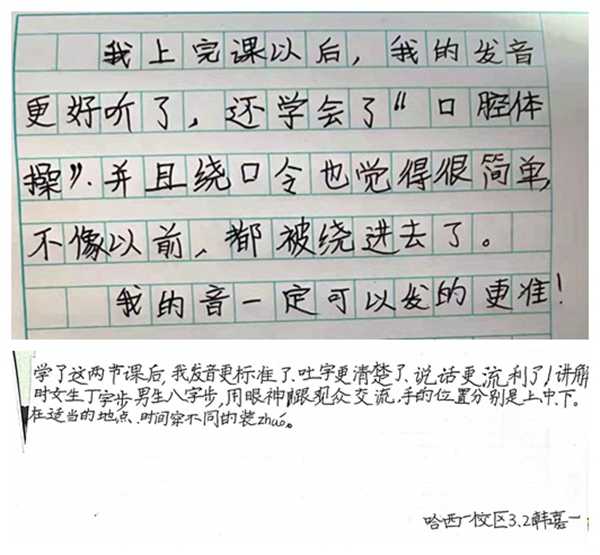 我上完课以后，我的发音
更好听了，还学会了“口腔体
操”、并且绕口令也觉得很简单，
不像以前，都被绕进去了。
我的音一定可以发的更准！
学了这两节课后，我发音更标准了、吐字更清楚了、说话更流利了！讲解
时女生丁字步，男生八字步，用眼神跟观众交流，手的位置分别是上、中、下。
在适当的地点、时间穿不同的装zhuó。
哈西一校区3.2韩嘉一